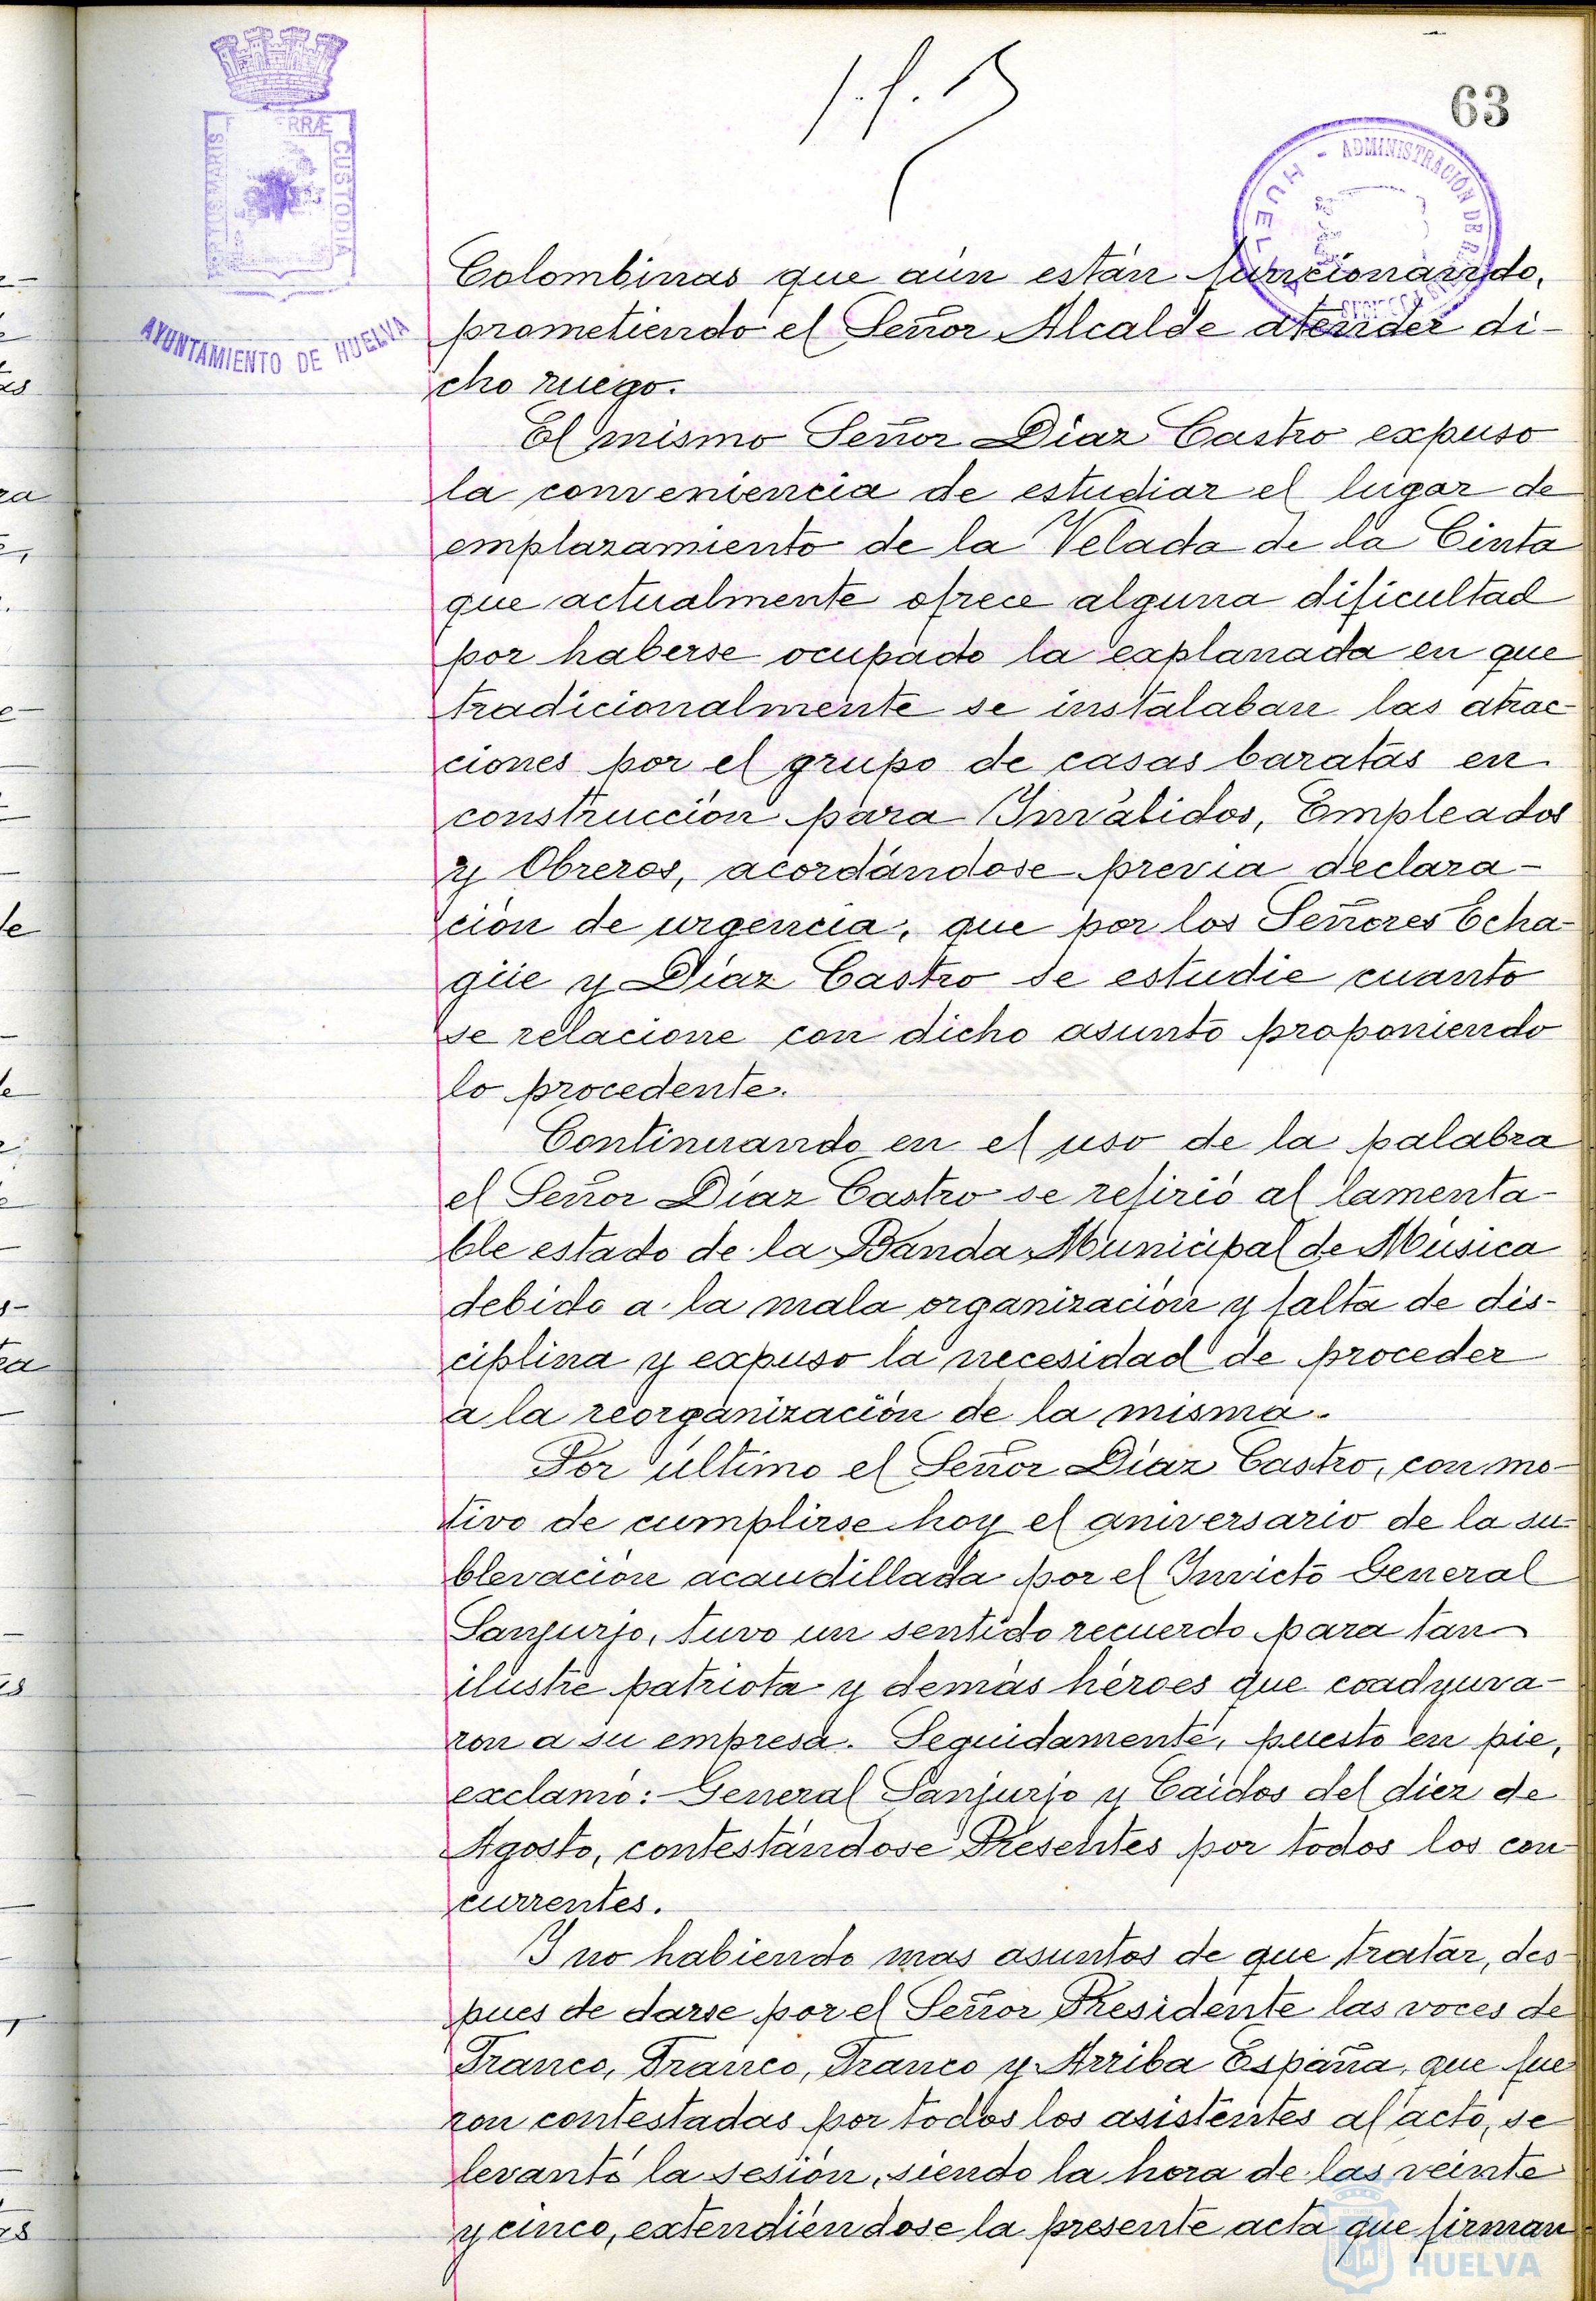 63
PORTUS MARIS ET TERRÆ CUSTODIA
AYUNTAMIENTO DE HUELVA
ADMINISTRACIÓN DE
HUELVA
Colombinas que aún están funcionando,
prometiendo el Señor Alcalde atender di-
cho ruego.
El mismo Señor Diaz Castro expuso
la conveniencia de estudiar el lugar de
emplazamiento de la Velada de la Cinta
que actualmente ofrece alguna dificultad
por haberse ocupado la explanada en que
tradicionalmente se instalaban las atrac-
ciones por el grupo de casas baratas en
construcción para Inválidos, Empleados
y Obreros, acordándose previa declara-
ción de urgencia, que por los Señores Echa-
güe y Díaz Castro se estudie cuanto
se relacione con dicho asunto proponiendo
lo procedente.
Continuando en el uso de la palabra
el Señor Díaz Castro se refirió al lamenta-
ble estado de la Banda Municipal de Música
debido a la mala organización y falta de dis-
ciplina y expuso la necesidad de proceder
a la reorganización de la misma.
Por último el Señor Díaz Castro, con mo-
tivo de cumplirse hoy el aniversario de la su-
blevación acaudillada por el Invicto General
Sanjurjo, tuvo un sentido recuerdo para tan
ilustre patriota y demás héroes que coadyuva-
ron a su empresa. Seguidamente, puesto en pie,
exclamó:- General Sanjurjo y Caidos del diez de
Agosto, contestándose Presentes por todos los con
currentes.
Y no habiendo mas asuntos de que tratar, des
pues de darse por el Señor Presidente las voces de
Franco, Franco, Franco y Arriba España, que fue
ron contestadas por todos los asistentes al acto, se
levantó la sesión, siendo la hora de las veinte
y cinco, extendiéndose la presente acta que firman
Ayuntamiento de
HUELVA